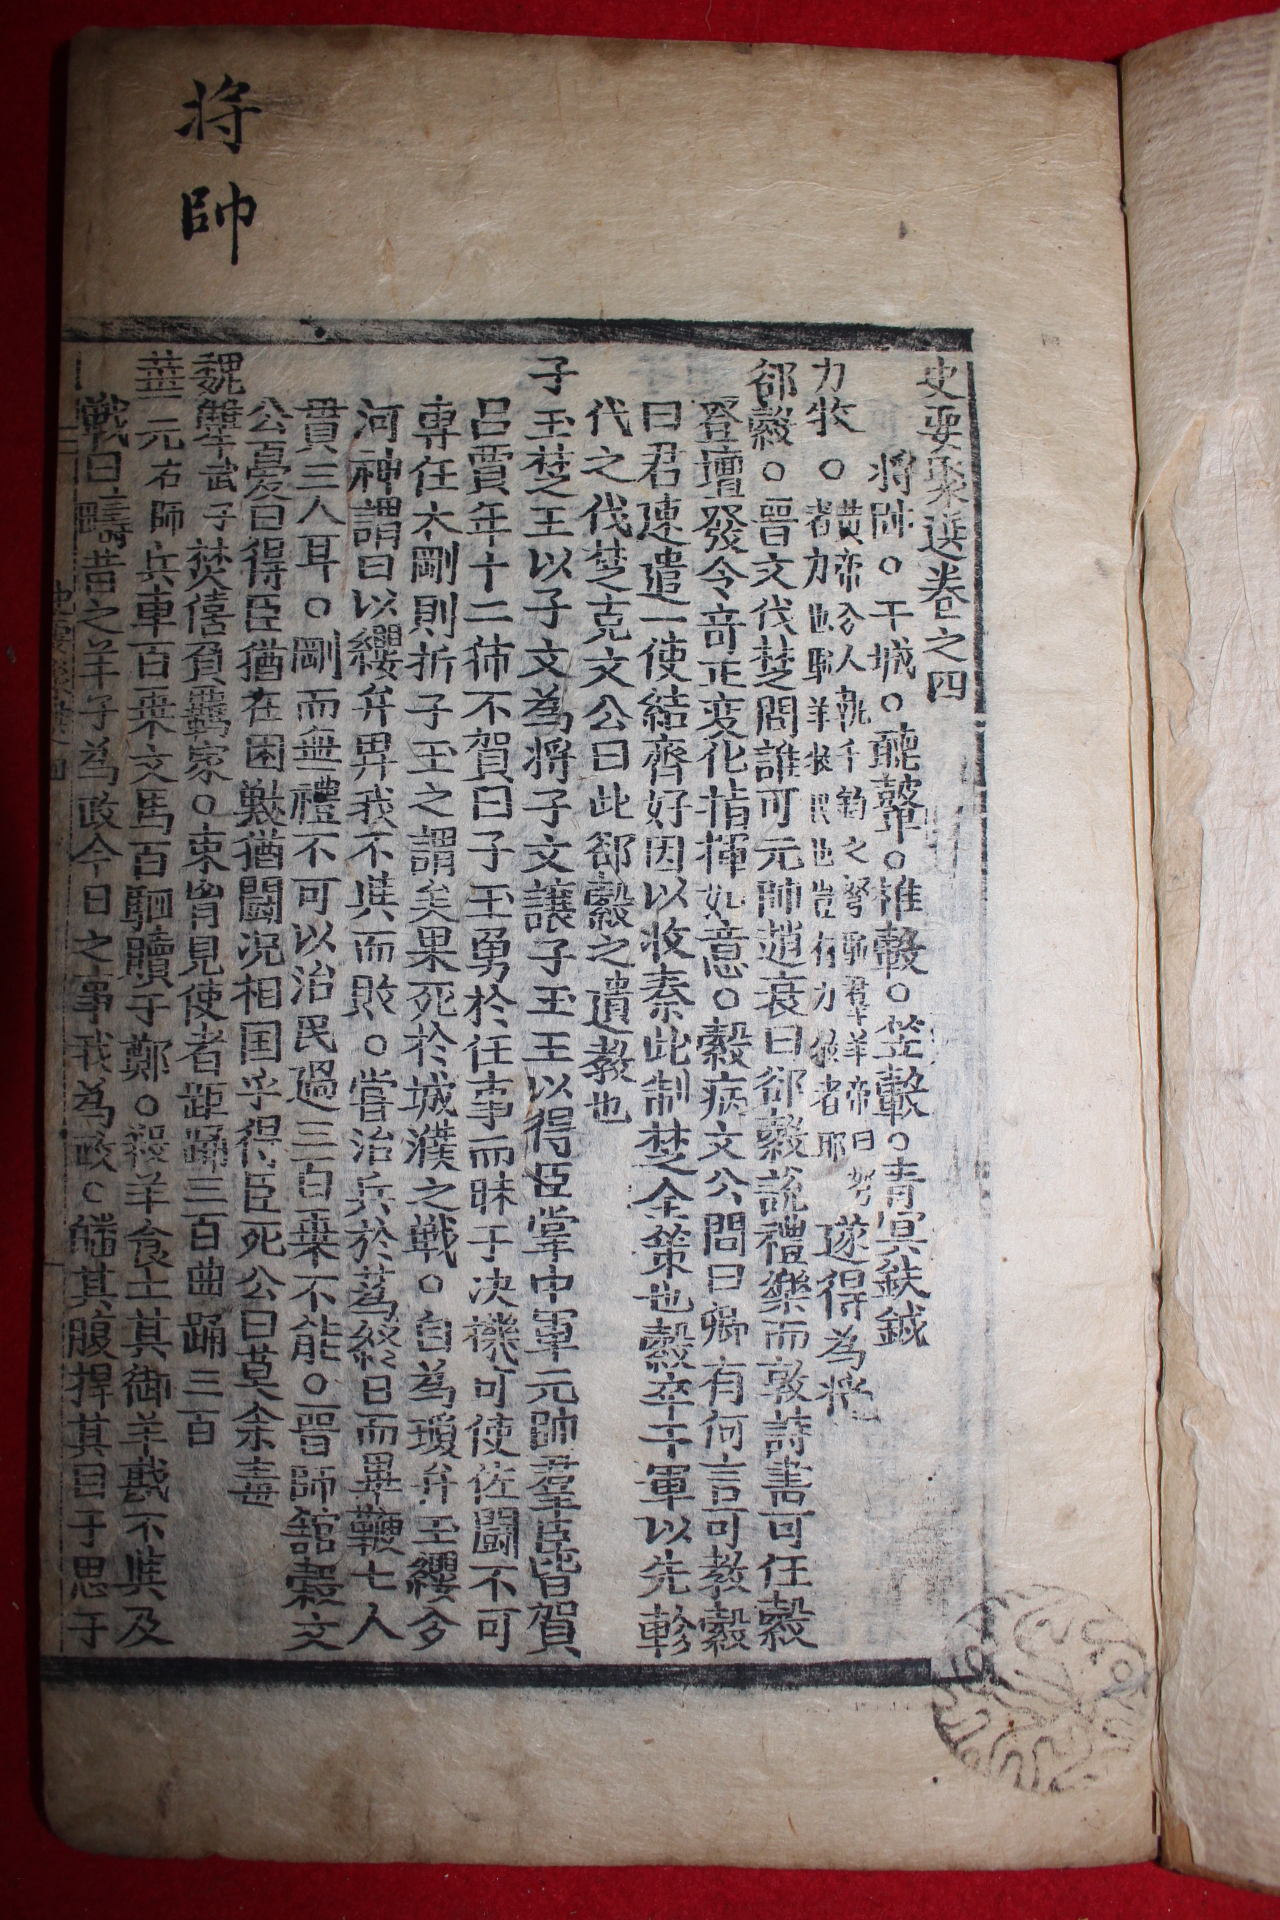 将帥
史要聚選卷之四
将帥○干城○聽鼙○推轂○笠轂○青冥鈇鉞
力牧○黄帝夢人執千鈞之弩驅群羊帝曰弩者力也驅羊牧民也豈有力牧者耶遂得為將
郤縠○晋文伐楚問誰可元帥趙衰曰郤縠說禮樂而敦詩書可任縠
登壇發令奇正変化指揮如意○縠病文公問曰卿有何言可教縠
曰君速遣一使結齊好因以收秦此制楚全策也縠卒于軍以先軫
代之伐楚克文公曰此郤縠之遺教也
子玉楚王以子文為将子文讓子玉王以得臣掌中軍元帥羣臣皆賀
呂賈年十二獨不賀曰子玉勇於任事而昧于决機可使佐闘不可
專任太剛則折子玉之謂矣果死於城濮之戦○自為瓊弁玉纓夛
河神謂曰以纓弁畀我不與而敗○嘗治兵於蒍終日而畢鞭七人
貫三人耳○剛而無禮不可以治民過三百乗不能○晋師舘糓文
公憂曰得臣猶在困獸猶闘况相国乎得臣死公曰莫余毒
魏犨武子焚僖負羈家○束胷見使者距踊三百曲踊三百
華元右師兵車百乗文馬百駟贖于鄭○殺羊食士其御羊斟不與及
戦曰疇昔之羊子為政今日之事我為政○皤其腹捍其目于思于